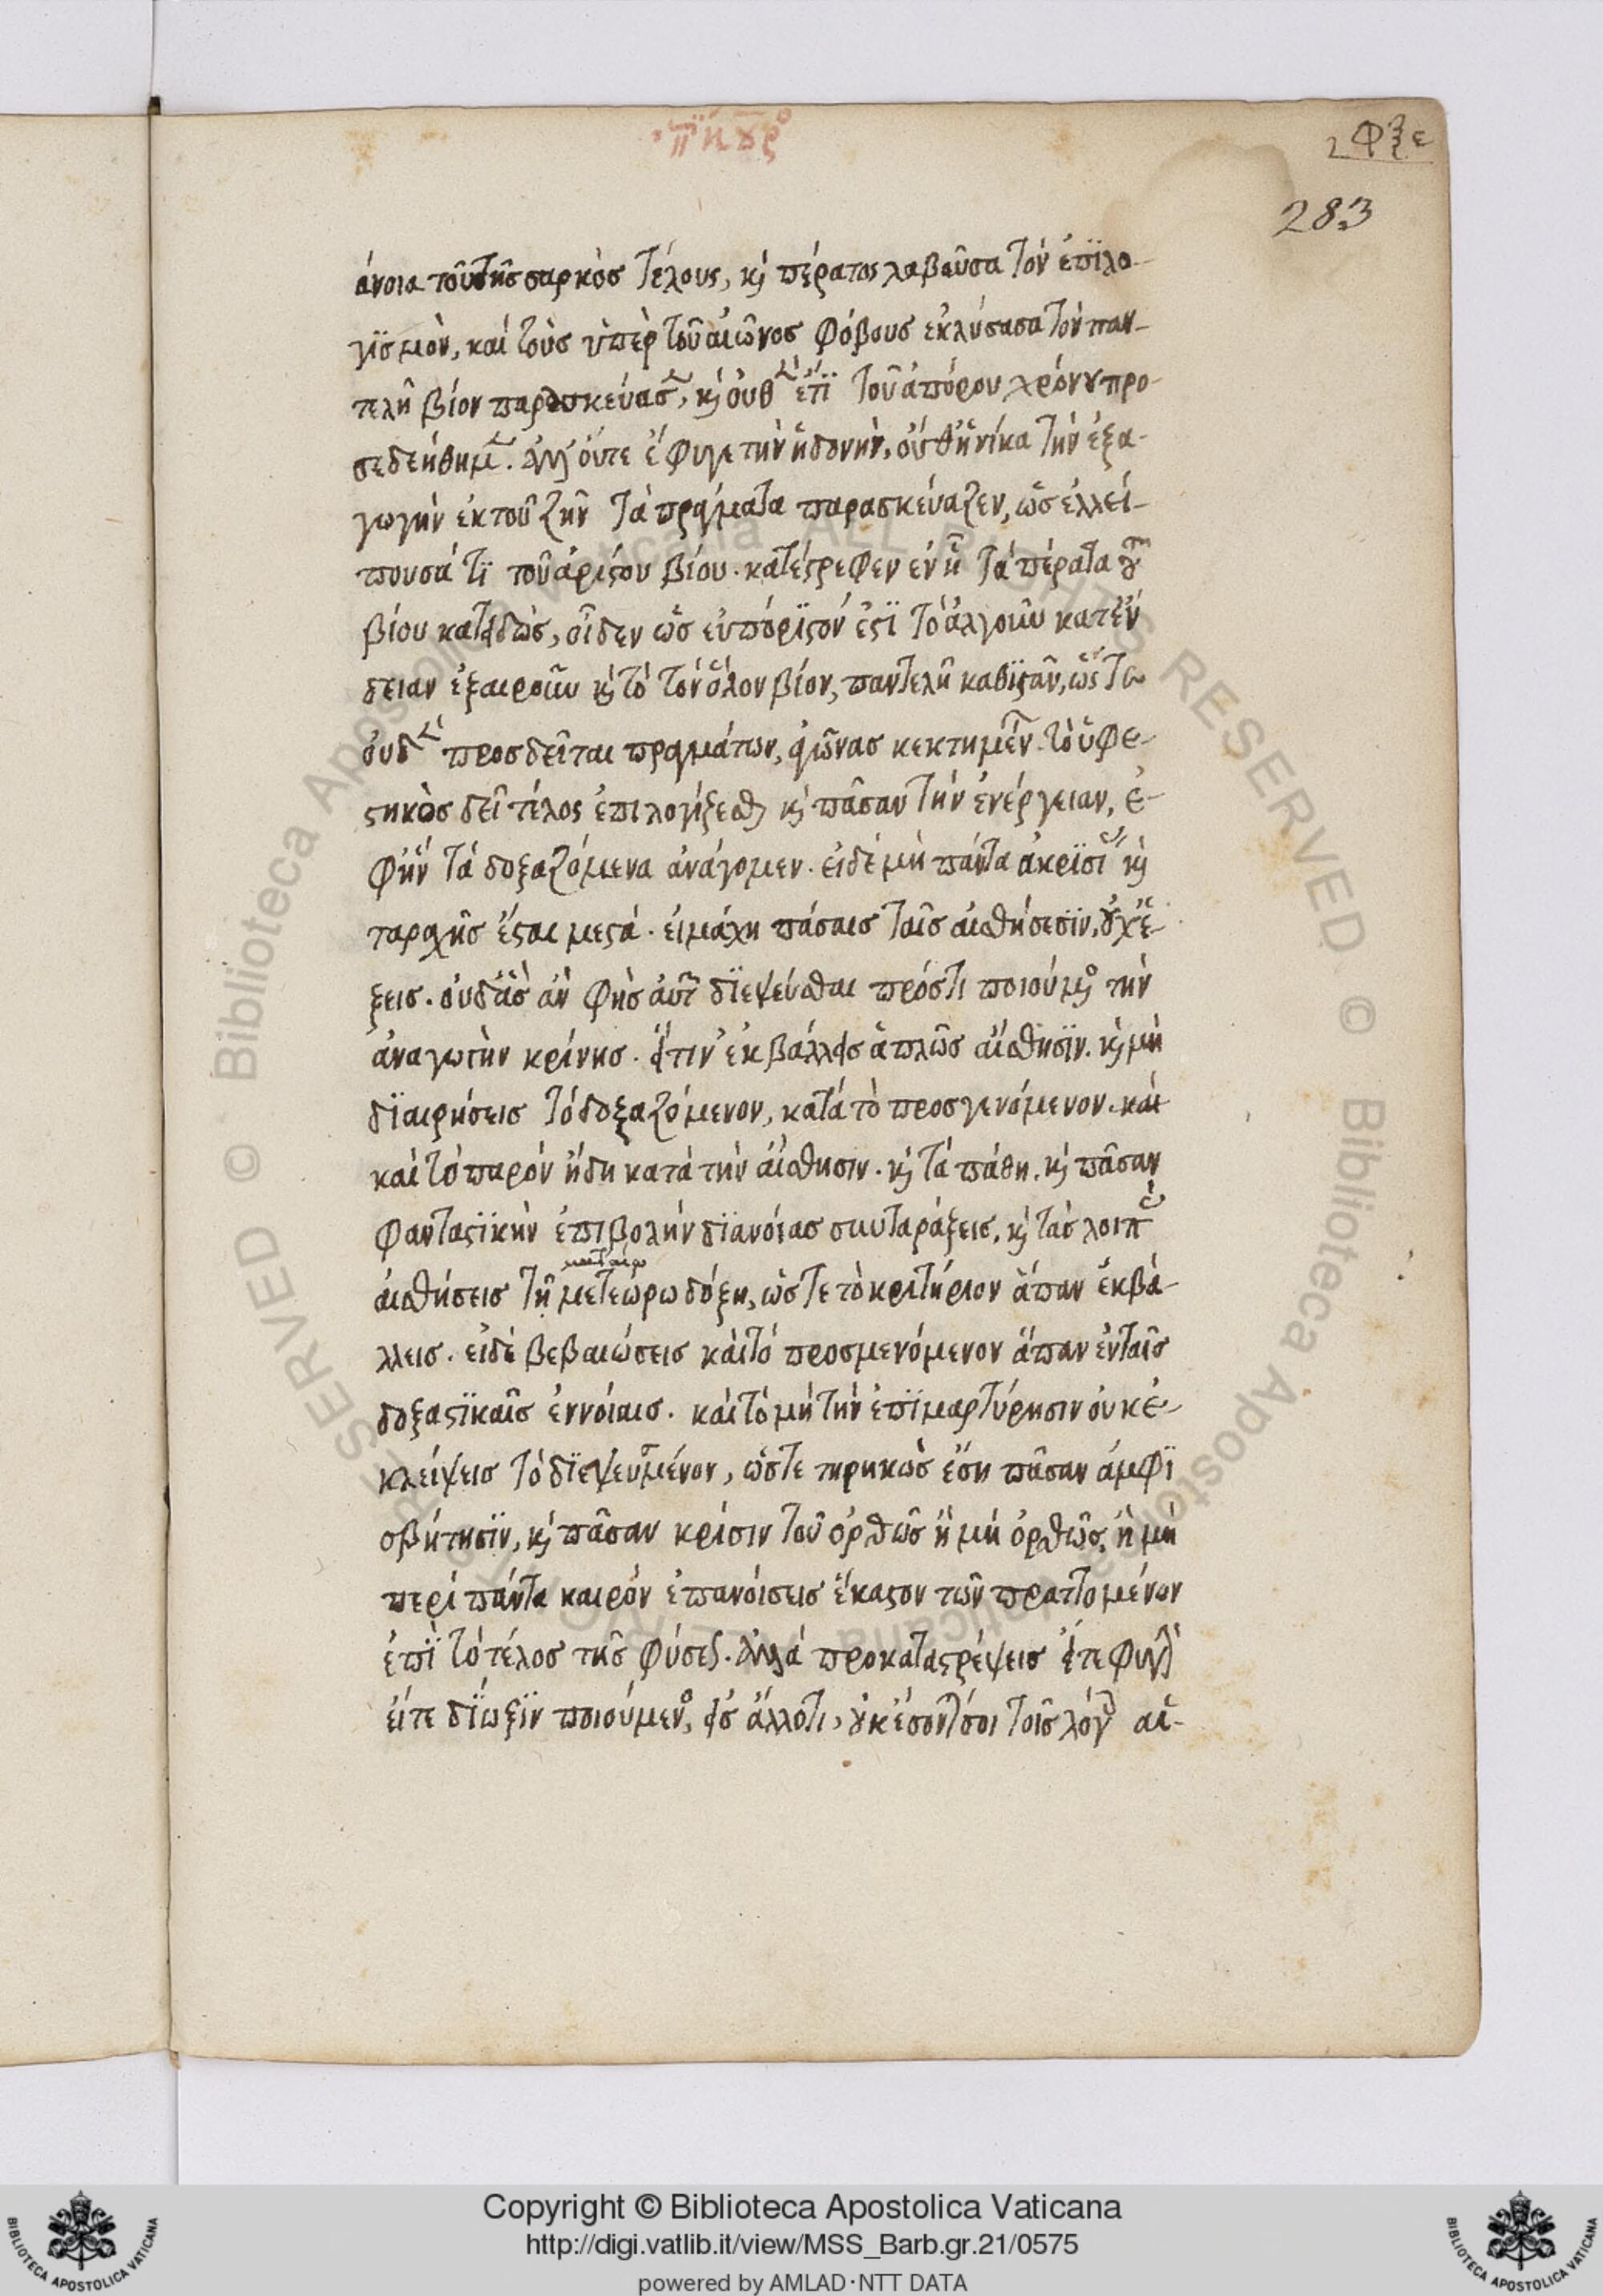 ἐπίκουρος
φξε
283
άνοια τοῦ τῆς σαρκὸς τέλους, κὶ πέρατος λαβοῦσα τὸν ἐπϊλο-
γϊσμὸν, καὶ τοὺς ὑπὲρ τοῦ αἰῶνος φόβους ἐκλύσασα τὸν παν-
τελῆ βίον παρεσκεύασε, κὶ οὐθὲν ἔτϊ τοῦ ἀπόρου χρόνου προ-
σεδεήθημεν. ἀλλ' οὔτε ἔφυγε τὴν ἡδονὴν, οὐθ' ἡνίκα τὴν ἐξα-
γωγὴν ἐκ τοῦ ζῆν τὰ πράγματα παρασκεύαζεν, ὡς ἐλλεί-
πουσά τϊ τοῦ ἀρίστου βίου. κατέστρεφεν ἐν ἧ τὰ πέρατα τοῦ
βίου κατειδὼς, οἶδεν ὡς εὐπόριστόν ἐστϊ τὸ ἀλγοῦν κατ' ἔν
δειαν ἐξαιροῦν κὶ τὸ τὸν ὅλον βίον, παντελῆ καθϊστᾶν, ὥστε
οὐδὲν προσδεῖται πραγμάτων, ἀγῶνας κεκτημένων. τὸ ὑφε-
στηκὸς δεῖ τέλος ἐπιλογίζεσθαι κὶ πᾶσαν τὴν ἐνέργειαν, ἐ-
φ' ἣν τὰ δοξαζόμενα ἀνάγομεν. εἰ δὲ μὴ πάντα ἀκρϊσίας κὶ
ταραχῆς ἔσται μεστά. εἰ μάχη πάσαις ταῖς αἰσθήσεσϊν, οὐχ ἕ-
ξεις. οὐδ' ἃς ἂν φῂς αὐτῶν δϊεψεύσθαι πρὸς τι ποιούμενος τὴν
ἀναγωγὴν κρίνης. εἴ τιν' ἐκβάλλεις ἁπλῶς αἴσθησϊν. κὶ μὴ
δϊαιρήσεις τὸ δοξαζόμενον, κατὰ τὸ προσγενόμενον. καὶ
καὶ τὸ παρὸν ἤδη κατὰ τὴν αἴσθησιν. κὶ τὰ πάθη. κὶ πᾶσαν
φανταστϊκὴν ἐπιβολὴν δϊανοίας συνταράξεις, κὶ τὰς λοιπὰς
ματαίω
αἰσθήσεις τῆ μετεώρω δόξη, ὥστε τὸ κριτήριον ἅπαν ἐκβά-
λλεις. εἰ δὲ βεβαιώσεις καὶ τὸ προσμενόμενον ἅπαν ἐν ταῖς
δοξαστϊκαῖς ἐννοίαις. καὶ τὸ μὴ τὴν ἐπϊμαρτύρησιν οὐκ ἐ-
κλείψεις τὸ δϊεψευσμένον, ὥστε τηρηκὼς ἔση πᾶσαν ἀμφϊ
σβήτησϊν, κὶ πᾶσαν κρίσιν τοῦ ὀρθῶς ἢ μὴ ὀρθῶς. ἢ μὴ
περὶ πάντα καιρὸν ἐπανοίσεις ἕκαστον τῶν πραττομένων
ἐπϊ τὸ τέλος τῆς φύσεως. ἀλλὰ προκαταστρέψεις εἴτε φυγὴν
εἴτε δϊωξϊν ποιούμενος, εἰς ἄλλο τι, οὐκ ἔσονταί σοι τοῖς λόγοις αἱ-